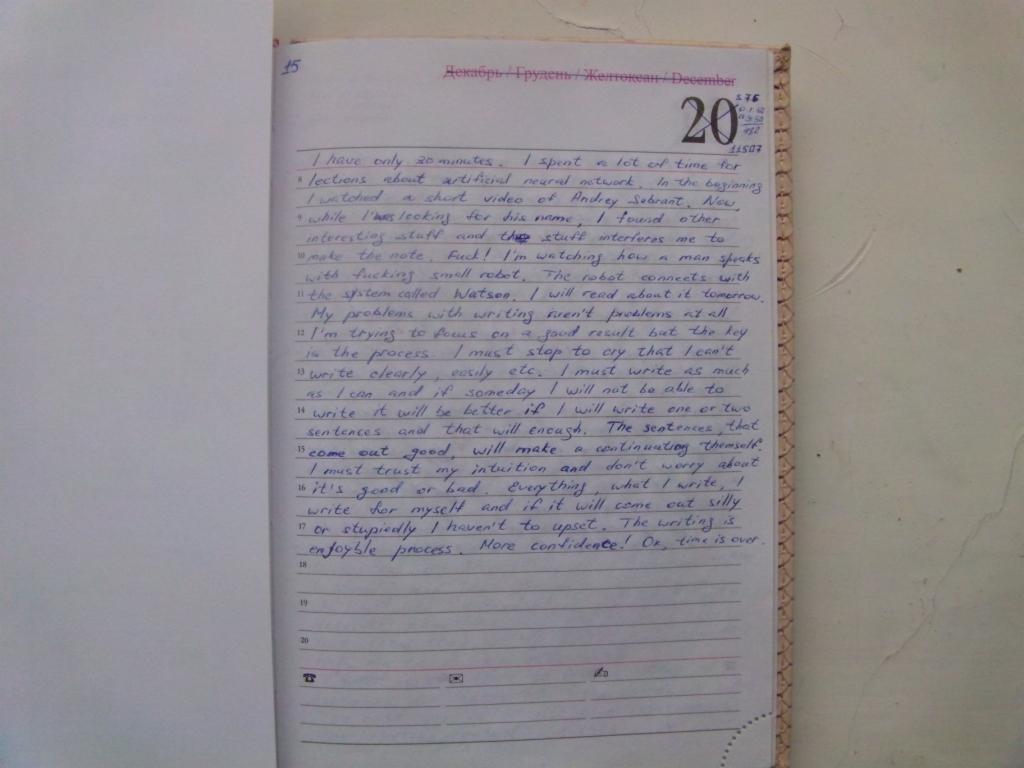 15
Декабрь / Грудень / Желтоқсан / December
20
11507
I have only 20 minutes. I spent a lot of time for
8 lections about artificial neural network. In the beginning
I watched a short video of Andrey Sebrant. Now,
9 while I was looking for his name, I found other
interesting stuff and the stuff interferes me to
10 make the note. Fuck! I'm watching how a man speaks
with fucking small robot. The robot connects with
11 the system called Watson. I will read about it tomorrow.
My problems with writing aren't problems at all
12 I'm trying to focus on a good result but the key
in the process. I must stop to cry that I can't
13 write clearly, easily etc. I must write as much
as I can and if someday I will not be able to
14 write it will be better if I will write one or two
sentences and that will enough. The sentences, that
15 come out good, will make a continuating themself.
I must trust my intuition and don't worry about
16 it's good or bad. Everything, what I write, I
write for myself and if it will come out silly
17 or stupiedly I haven't to upset. The writing is
enjoyble process. More confidence! Ok, time is over.
18
19
20